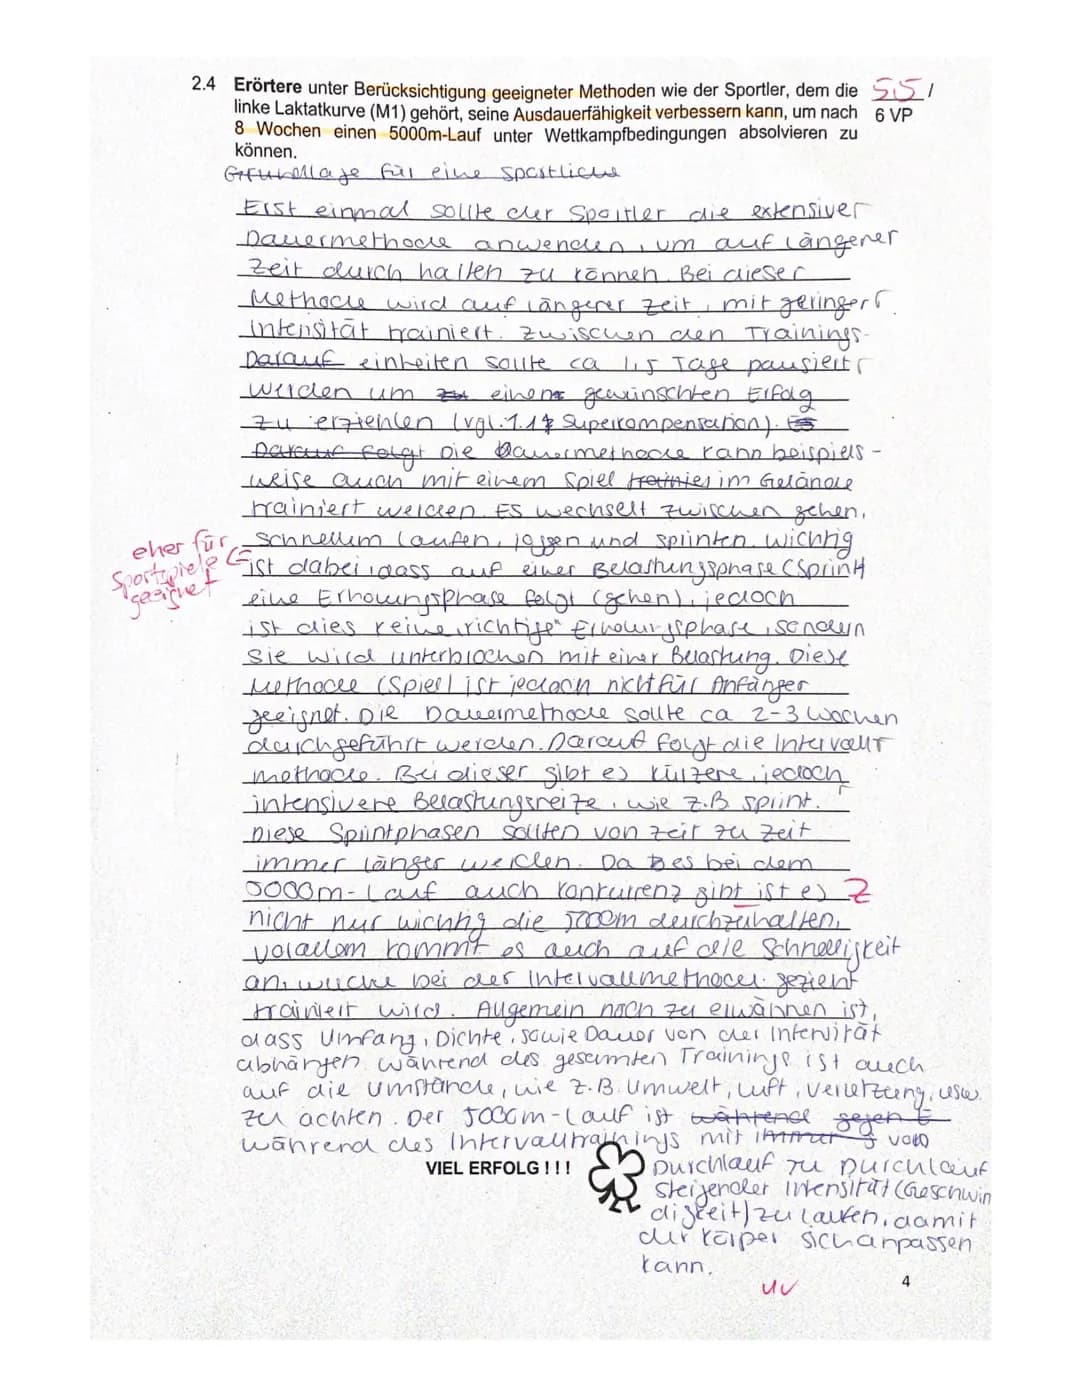 2.4 Erörtere unter Berücksichtigung geeigneter Methoden wie der Sportler, dem die 5,5 /
linke Laktatkurve (M1) gehört, seine Ausdauerfähigkeit verbessern kann, um nach 6 VP
8 Wochen einen 5000m-Lauf unter Wettkampfbedingungen absolvieren zu
können.
Grundlage für eine sportliche
Erst einmal sollte der Sportler die extensiver
Dauermethode anwenden, um auf längerer
Zeit durch halten zu können. Bei dieser
Methode wird auf längerer Zeit, mit geringer
Intensität trainiert. Zwischen den Trainings-
Darauf einheiten sollte ca 1,5 Tage pausiert
werden um einen gewünschten Erfolg
zu erziehlen (vgl. 1.1 Superkompensation). Es
Darauf folgt Die Dauermethode kann beispiels-
weise auch mit einem Spiel im Gelände
trainiert werden. Es wechselt zwischen gehen,
eher für schnellem laufen, joggen und sprinten. Wichtig
Sportspiele ist dabei, dass auf einer Belastungsphase (Sprint)
geeignet eine Erholungsphase folgt (gehen), jedoch
ist dies keine "richtige" Erholungsphase, sondern
sie wird unterbrochen mit einer Belastung. Diese
Methode (Spiel) ist jedoch nicht für Anfänger
geeignet. Die Dauermethode sollte ca 2-3 Wochen
durchgeführt werden. Darauf folgt die Intervall
methode. Bei dieser gibt es kürzere, jedoch
intensivere Belastungsreize, wie z.B sprint.
Diese Sprintphasen sollten von zeit zu zeit
immer länger werden. Da es bei dem
5000m-Lauf auch Konkurrenz gibt ist es Z
nicht nur wichtig die 5000m durchzuhalten,
vorallem kommt es auch auf die Schnelligkeit
an, welche bei der Intervallmethode gezielt
trainiert wird. Allgemein noch zu erwähnen ist,
dass Umfang, Dichte, sowie Dauer von der Intensität
abhängen. während des gesamten Trainings ist auch
auf die Umstände, wie z.B. Umwelt, Luft, Verletzung, usw.
zu achten. Der 5000m-Lauf ist während gegen E
während des Intervalltrainings mit immer von
VIEL ERFOLG !!! Durchlauf zu Durchlauf
steigender Intensität (Geschwin
digkeit) zu laufen, damit
der Körper sich anpassen
kann.
4